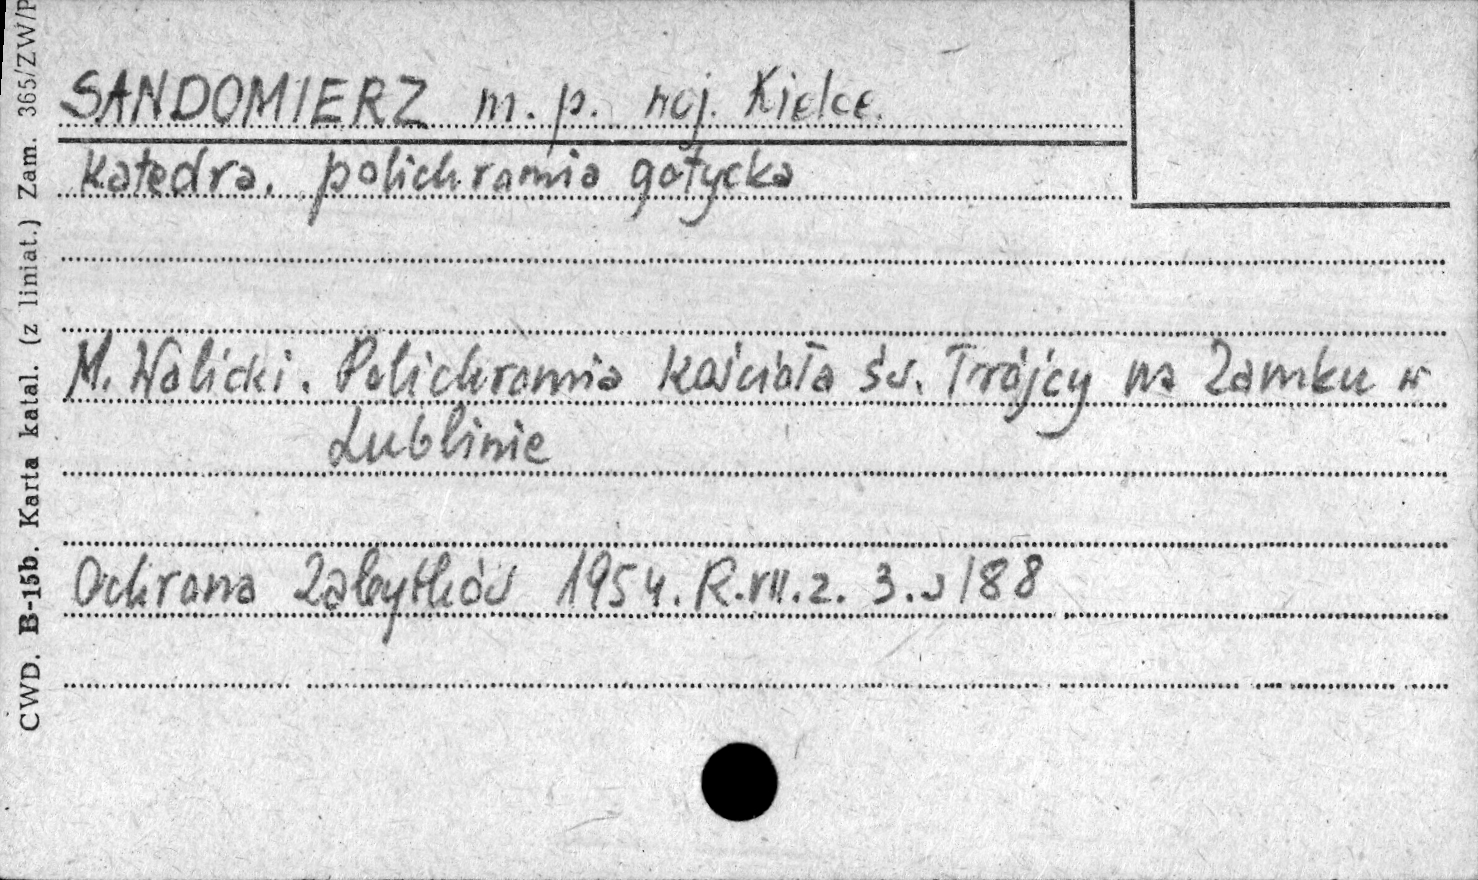 SANDOMIERZ m. p. woj. Kielce.
Katedra. polichromia gotycka
M. Walicki. Polichromia Kościoła św. Trójcy na Zamku w
Lublinie
Ochrona Zabytków 1954. R.VII. z. 3. s 188
CWD. B-15b. Karta katal. (z liniat.) Zam. 365/ZW/P